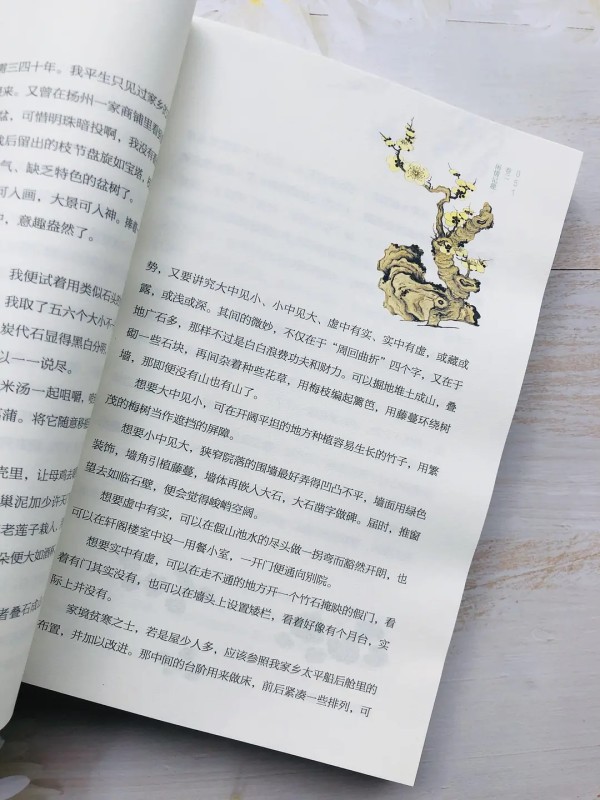 三四十年。我平生只见过家乡
来。又曾在扬州一家商铺里看
盆，可惜明珠暗投啊，我没有
后留出的枝节盘旋如宝塔，
气、缺乏特色的盆树了。
可入画，大景可入神。
，意趣盎然了。
我便试着用类似石
我取了五六个大小不
炭代石显得黑白分明
以一一说尽。
米汤一起咀嚼，
菖蒲。将它随意移
壳里，让母鸡去
巢泥加少许天
老莲子栽入
朵便大如酒杯
者叠石成
势，又要讲究大中见小、小中见大、虚中有实、实中有虚，或藏或
露，或浅或深。其间的微妙，不仅在于“周回曲折”四个字，又在于
地广石多，那样不过是白白浪费功夫和财力。可以掘地堆土成山，叠
砌一些石块，再间杂着种些花草，用梅枝编起篱笆，用藤蔓环绕树
墙，那即便没有山也有山了。
想要大中见小，可在开阔平坦的地方种植容易生长的竹子，用繁
茂的梅树当作遮挡的屏障。
想要小中见大，狭窄院落的围墙最好弄得凹凸不平，墙面用绿色
装饰，墙角引植藤蔓，墙体再嵌入大石，大石凿字做碑。届时，推窗
望去如临石壁，便会觉得峻峭空阔。
想要虚中有实，可以在假山池水的尽头做一拐弯而豁然开朗，也
可以在轩阁楼室中设一用餐小室，一开门便通向别院。
想要实中有虚，可以在走不通的地方开一个竹石掩映的假门，看
着有门其实没有，也可以在墙头上设置矮栏，看着好像有个月台，实
际上并没有。
家境贫寒之士，若是屋少人多，应该参照我家乡太平船后舱里的
布置，并加以改进。那中间的台阶用来做床，前后紧凑一些排列，可